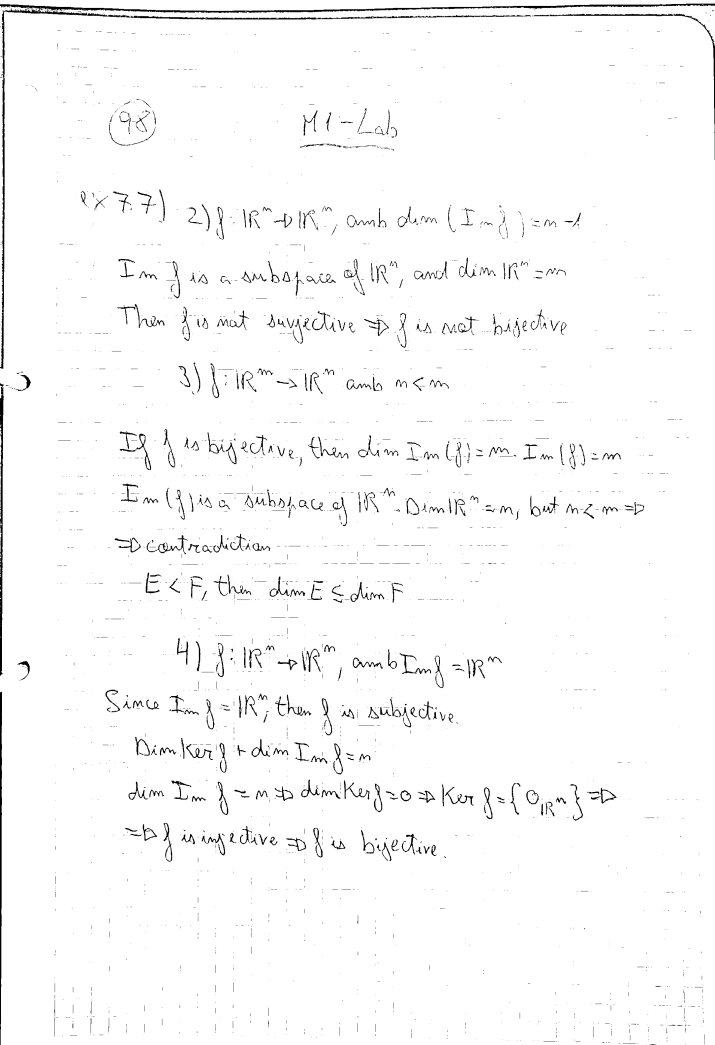 98
M1-Lab
ex 7.7) 2) f: ℝⁿ → ℝⁿ, amb dim (Im f) = n-1
Im f is a subspace of ℝⁿ, and dim ℝⁿ = n
Then f is not surjective ⇒ f is not bijective
3) f: ℝᵐ → ℝⁿ amb n < m
If f is bijective, then dim Im (f) = m. Im (f) = m
Im (f) is a subspace of ℝⁿ. Dim ℝⁿ = n, but n < m ⇒
⇒ contradiction
E < F, then dim E ≤ dim F
4) f: ℝⁿ → ℝⁿ, amb Im f = ℝⁿ
Since Im f = ℝⁿ, then f is subjective.
Dim Ker f + dim Im f = n
dim Im f = n ⇒ dim Ker f = 0 ⇒ Ker f = {0_ℝⁿ} ⇒
⇒ f is injective ⇒ f is bijective.